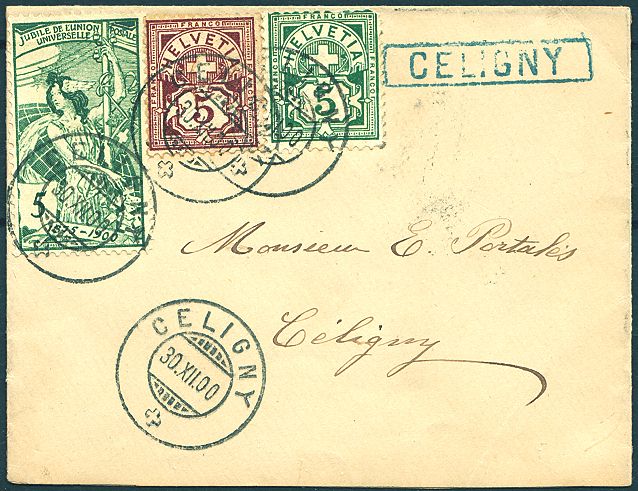 JUBILÉ DE L'UNION
POSTALE
UNIVERSELLE
5
1875-1900
FRANCO
HELVETIA
FRANCO
FRANCO
5
FRANCO
HELVETIA
FRANCO
FRANCO
5
CELIGNY
Monsieur E. Portalès
Céligny
CELIGNY
30.XII.00